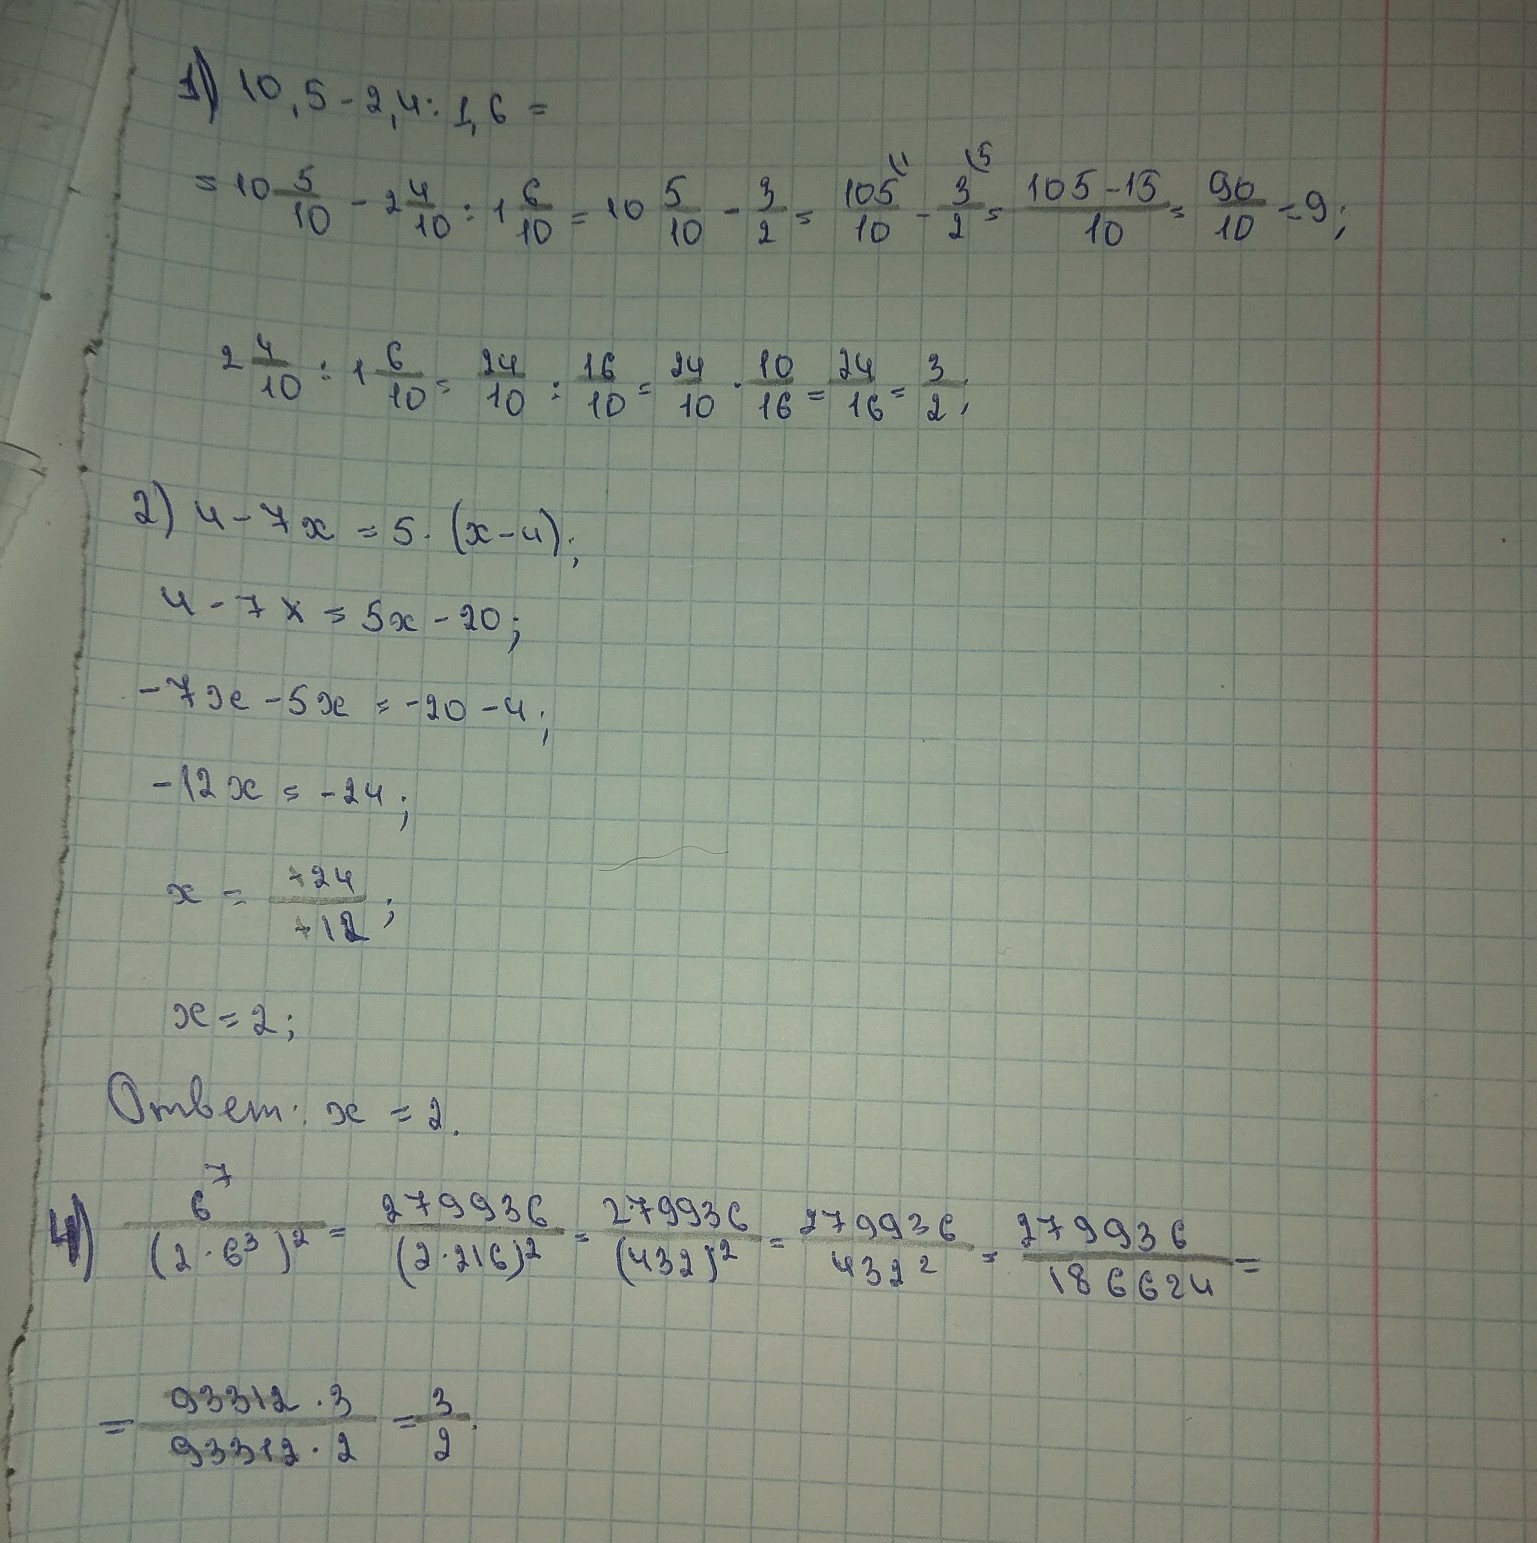 1) 10,5 - 2,4 : 1,6 =
= 10 5/10 - 2 4/10 : 1 6/10 = 10 5/10 - 3/2 = 105/10 (1 - 3/2 (5 = (105-15)/10 = 90/10 = 9;
2 4/10 : 1 6/10 = 24/10 : 16/10 = 24/10 · 10/16 = 24/16 = 3/2;
2) 4 - 7x = 5 · (x - 4);
4 - 7x = 5x - 20;
-7x - 5x = -20 - 4;
-12x = -24;
x = +24/+12;
x = 2;
Ответ: x = 2.
4) 6^7/(2 · 6^3)^2 = 279936/(2 · 216)^2 = 279936/(432)^2 = 279936/432^2 = 279936/186624 =
= 93312 · 3/93312 · 2 = 3/2.